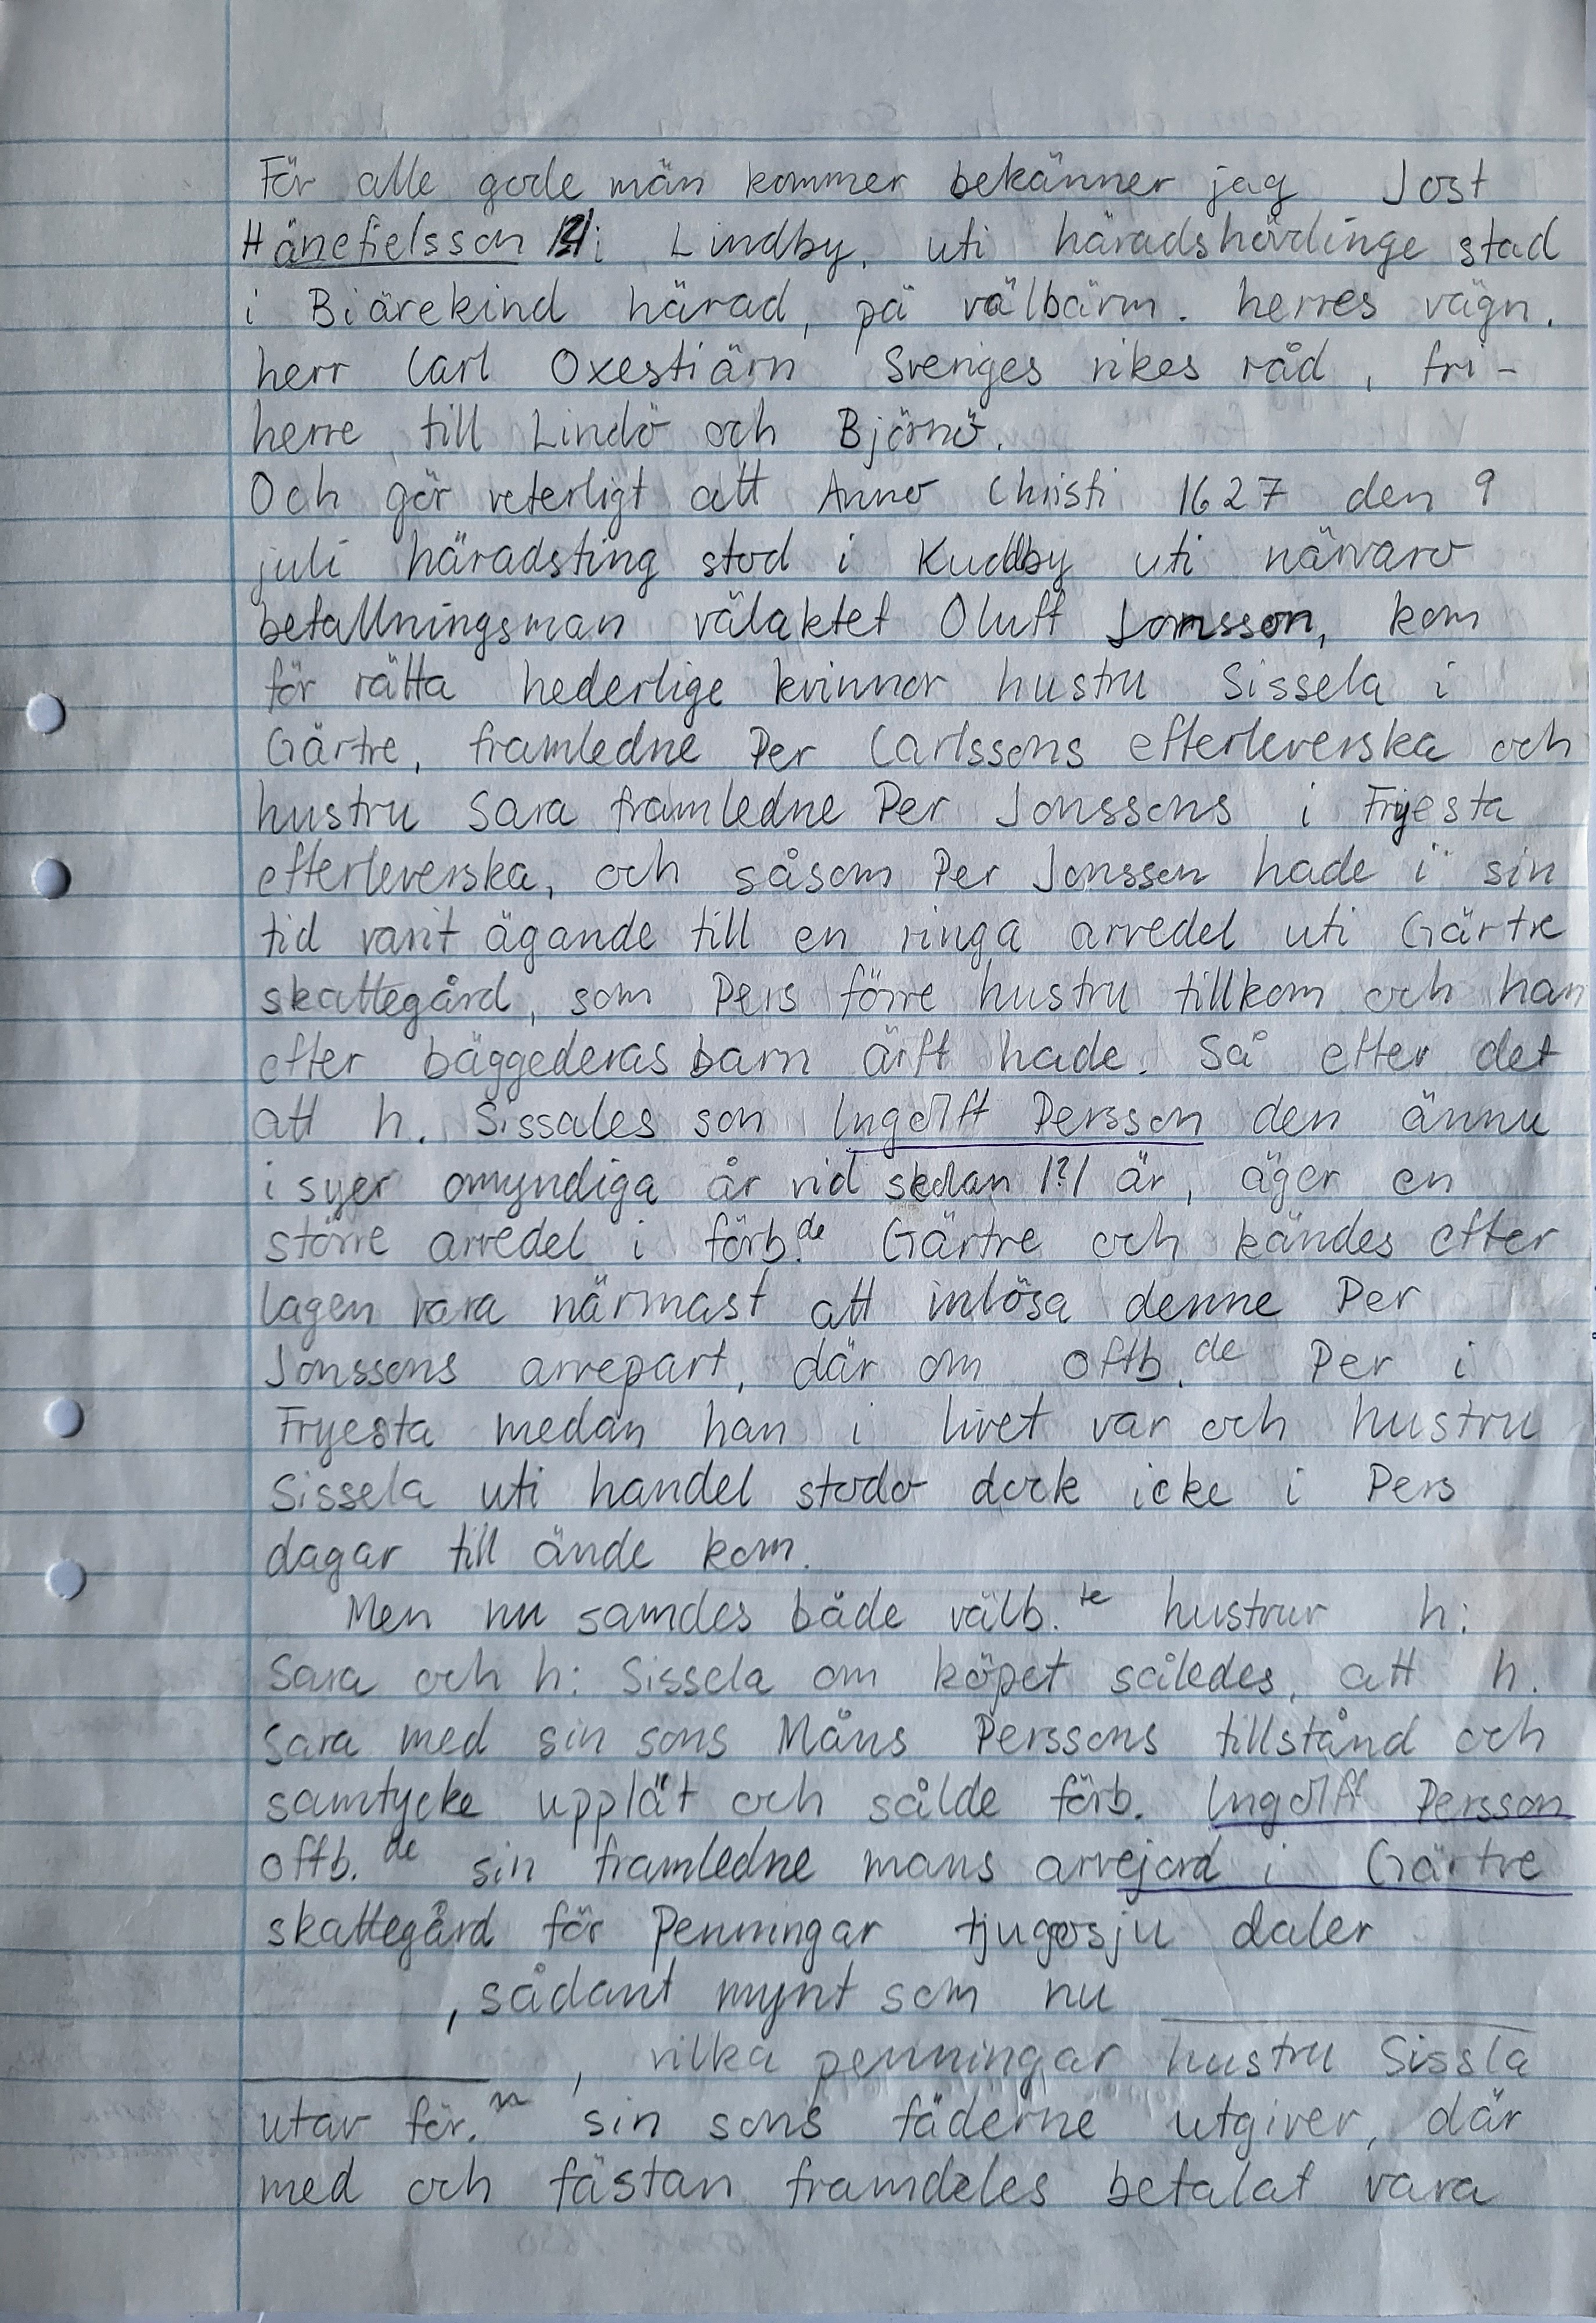 För alle gode män kommer bekänner jag Jost
Hänefielsson /?/ i Lindby, uti häradshövdinge stad
i Biärekind härad, på välbärm. herres vägn.
herr Carl Oxestiärn Sveriges rikes råd, fri-
herre till Lindö och Björnö.
Och gör veterligt att Anno Christi 1627 den 9
juli häradsting stod i Kuddby uti närvaro
befallningsman välaktet Oluff Jonsson, kom
för rätta hederlige kvinnor hustru Sissela i
Gärtre, framledne Per Carlssons efterleverska och
hustru Sara framledne Per Jonssons i Fryesta
efterleverska, och såsom Per Jonsson hade i sin
tid varit ägande till en ringa arvedel uti Gärtre
skattegård, som Pers förre hustru tillkom och han
efter bäggederas barn ärft hade. Så efter det
att h. Sissales son Ingolff Persson den ännu
i syer omyndiga år vid sedan /?/ är, äger en
större arvedel i förb.de Gärtre och kändes efter
lagen vara närmast att inlösa denne Per
Jonssons arvepart, där om oftb.de Per i
Fryesta medan han i livet var och hustru
Sissela uti handel stodo dock icke i Pers
dagar till ände kom.
Men nu samdes både välb.te hustrur h:
Sara och h: Sissela om köpet således, att h.
Sara med sin sons Måns Perssons tillstånd och
samtycke upplät och sålde förb. Ingolff Persson
oftb.de sin framledne mans arvejord i Gärtre
skattegård för Penningar tjugosju daler
, sådant mynt som nu
, vilka penningar hustru Sissla
utav för.n sin sons fäderne utgiver, där
med och fästan framdeles betalat vara